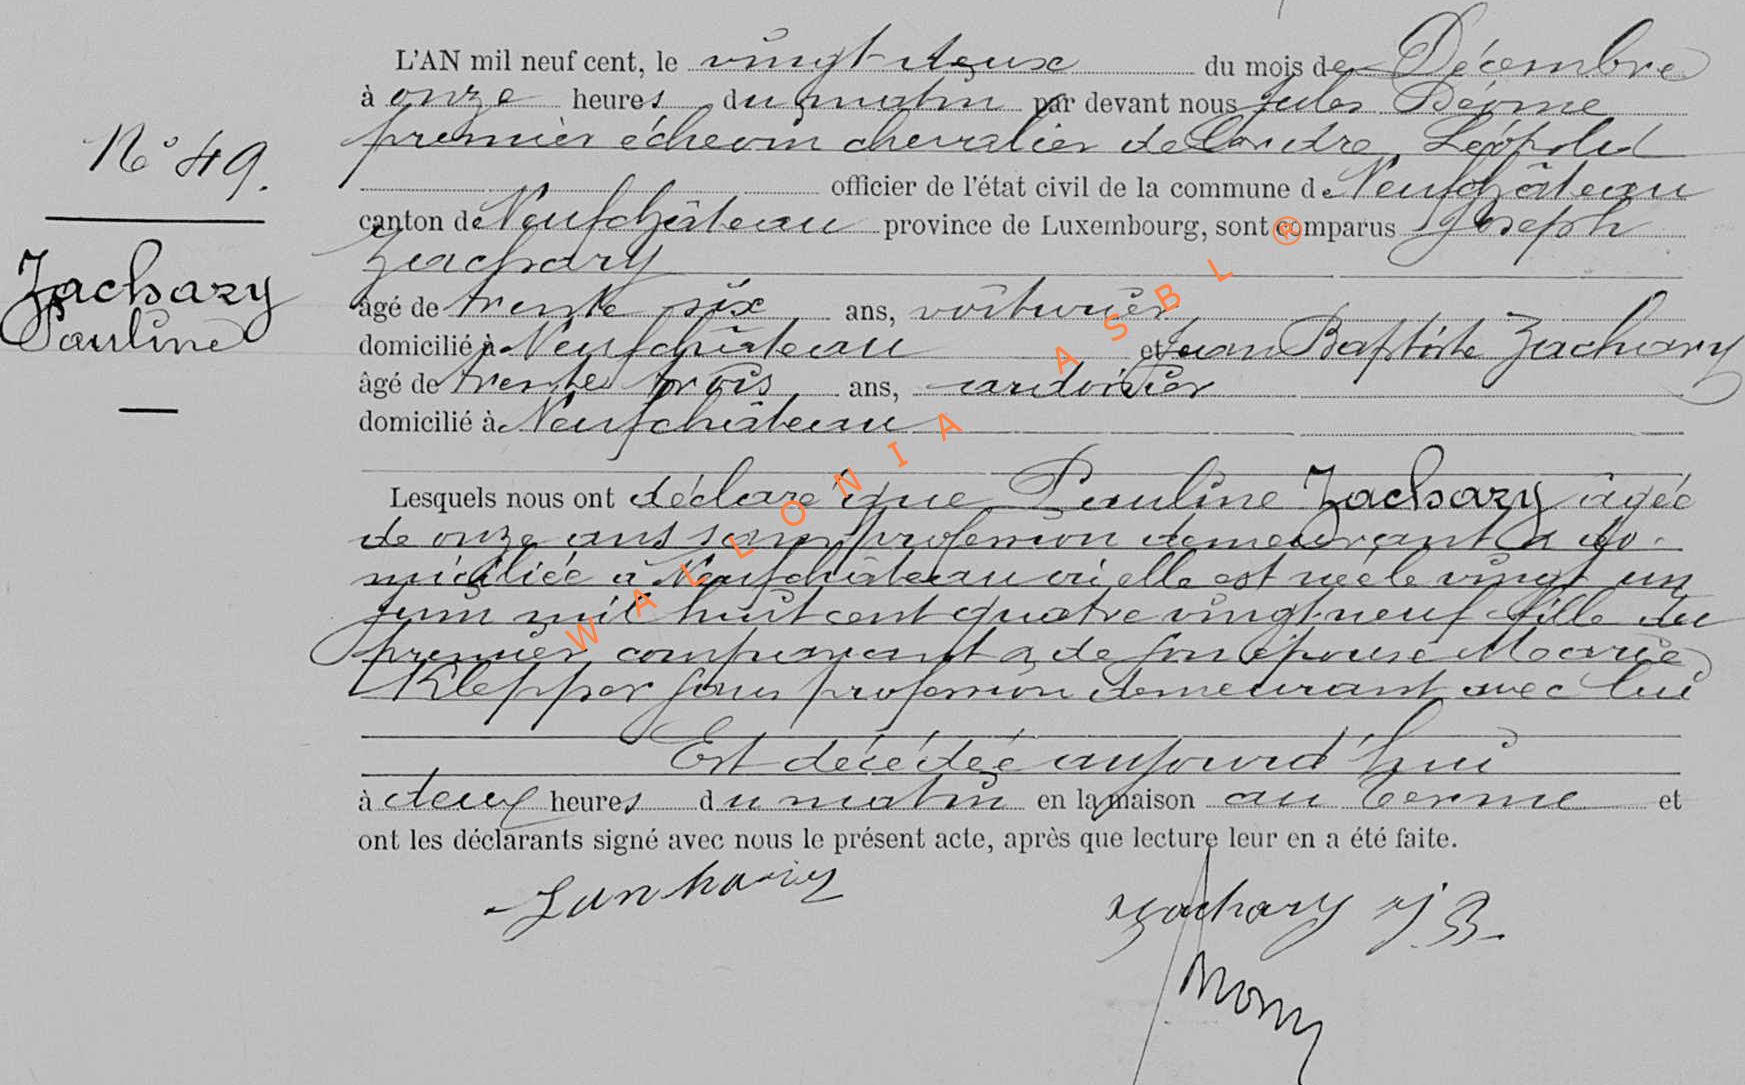 L'AN mil neuf cent, le vingt deux du mois de Décembre
à onze heures du matin par devant nous Jules
premier échevin chevalier de l'ordre Léopold
officier de l'état civil de la commune de Neufchâteau
canton de Neufchâteau province de Luxembourg, sont comparus Joseph
Zachary
âgé de trente six ans, voiturier
domicilié à Neufchâteau et Jean Baptiste Zachary
âgé de trente trois ans, ardoisier
domicilié à Neufchâteau
Lesquels nous ont déclaré que Pauline Zachary âgée
de onze ans sans profession demeurant & do-
miciliée à Neufchâteau où elle est née le vingt un
juin mil huit cent quatre vingt neuf fille du
premier comparant & de son épouse Marie
Klepper sans profession demeurant avec lui
Est décédée aujourd'hui
à deux heures du matin en la maison au Terme et
ont les déclarants signé avec nous le présent acte, après que lecture leur en a été faite.
Zachary J B
N° 49.
Zachary
Pauline
WALLONIA ASBL ®